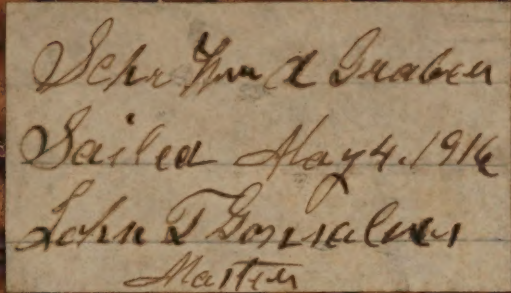 Schr Wm A Graber
Sailed May 4. 1916
John T Gonsalves
Master